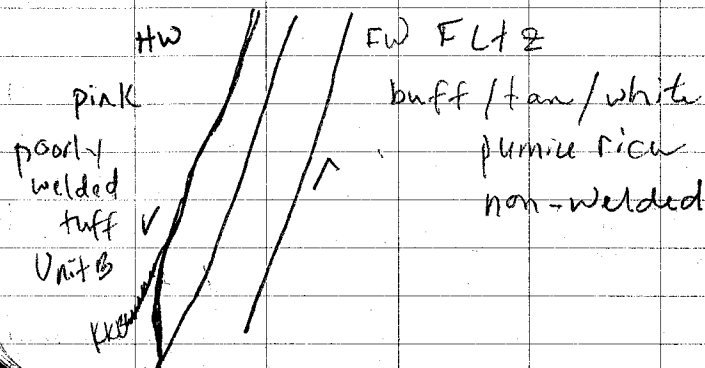 HW
FW FLtz
pink
poorly
welded
tuff
Unit B
buff/tan/white
pumice rich
non-welded